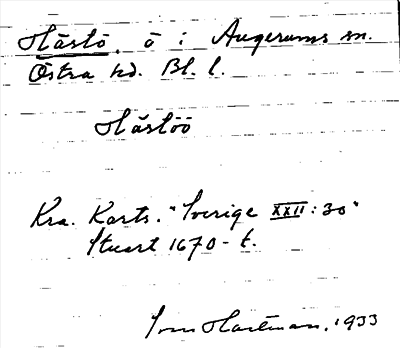 Hästö, ö i Augerums sn.
Östra hd. Bl. l.
Hästöö
Kra. Kartv. "Sverige XXII:30"
Stuart 1670-t.
Hartman, 1933